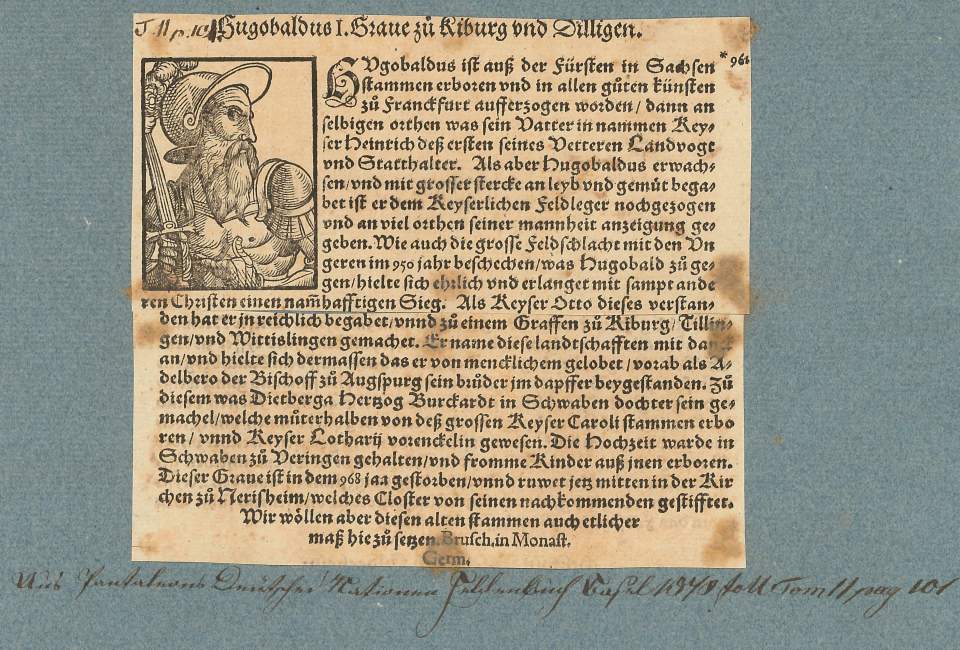 T. 11 p. 101 Hugobaldus I. Graue zů Kiburg vnd Dilligen.
HVgobaldus ist auß der Fürsten in Sachsen * 961
stammen erboren vnd in allen gůten künsten
zů Franckfurt aufferzogen worden / dann an
selbigen orthen was sein Vatter in nammen Key⸗
ser Heinrich deß ersten seines Vetteren Landvogt
vnd Statthalter. Als aber Hugobaldus erwach⸗
sen / vnd mit grosser stercke an leyb vnd gemůt bega⸗
bet ist er dem Keyserlichen Feldleger nochgezogen
vnd an viel orthen seiner mannheit anzeigung ge⸗
geben. Wie auch die grosse Feldschlacht mit den Vn
geren im 950 jahr beschechen / was Hugobald zů ge⸗
gen / hielte sich ehrlich vnd erlanget mit sampt ande
ren Christen einen nam̃hafftigen Sieg. Als Keyser Otto dieses verstan⸗
den hat er jn reichlich begabet / vnnd zů einem Graffen zů Kiburg / Tillin⸗
gen / vnd Wittislingen gemachet. Er name diese landtschafften mit danck
an / vnd hielte sich dermassen das er von mencklichem gelobet / vorab als A⸗
delbero der Bischoff zů Augspurg sein brůder jm dapffer beygestanden. Zů
diesem was Dietberga Hertzog Burckardt in Schwaben dochter sein ge⸗
machel / welche můterhalben von deß grossen Keyser Caroli stammen erbo
ren / vnnd Keyser Lotharij vorenckelin gewesen. Die Hochzeit warde in
Schwaben zů Veringen gehalten / vnd fromme Kinder auß jnen erboren.
Dieser Graue ist in dem 968 jaa gestorben / vnnd ruwet jetz mitten in der Kir
chen zů Nerisheim / welches Closter von seinen nachkommenden gestifftet.
Wir wöllen aber diesen alten stammen auch etlicher
maß hie zů setzen. Brusch. in Monast.
Germ.
Aus Pantaleons Deutscher Nationen Heldenbuch Basel 1578 fol. Tom 11 pag 101